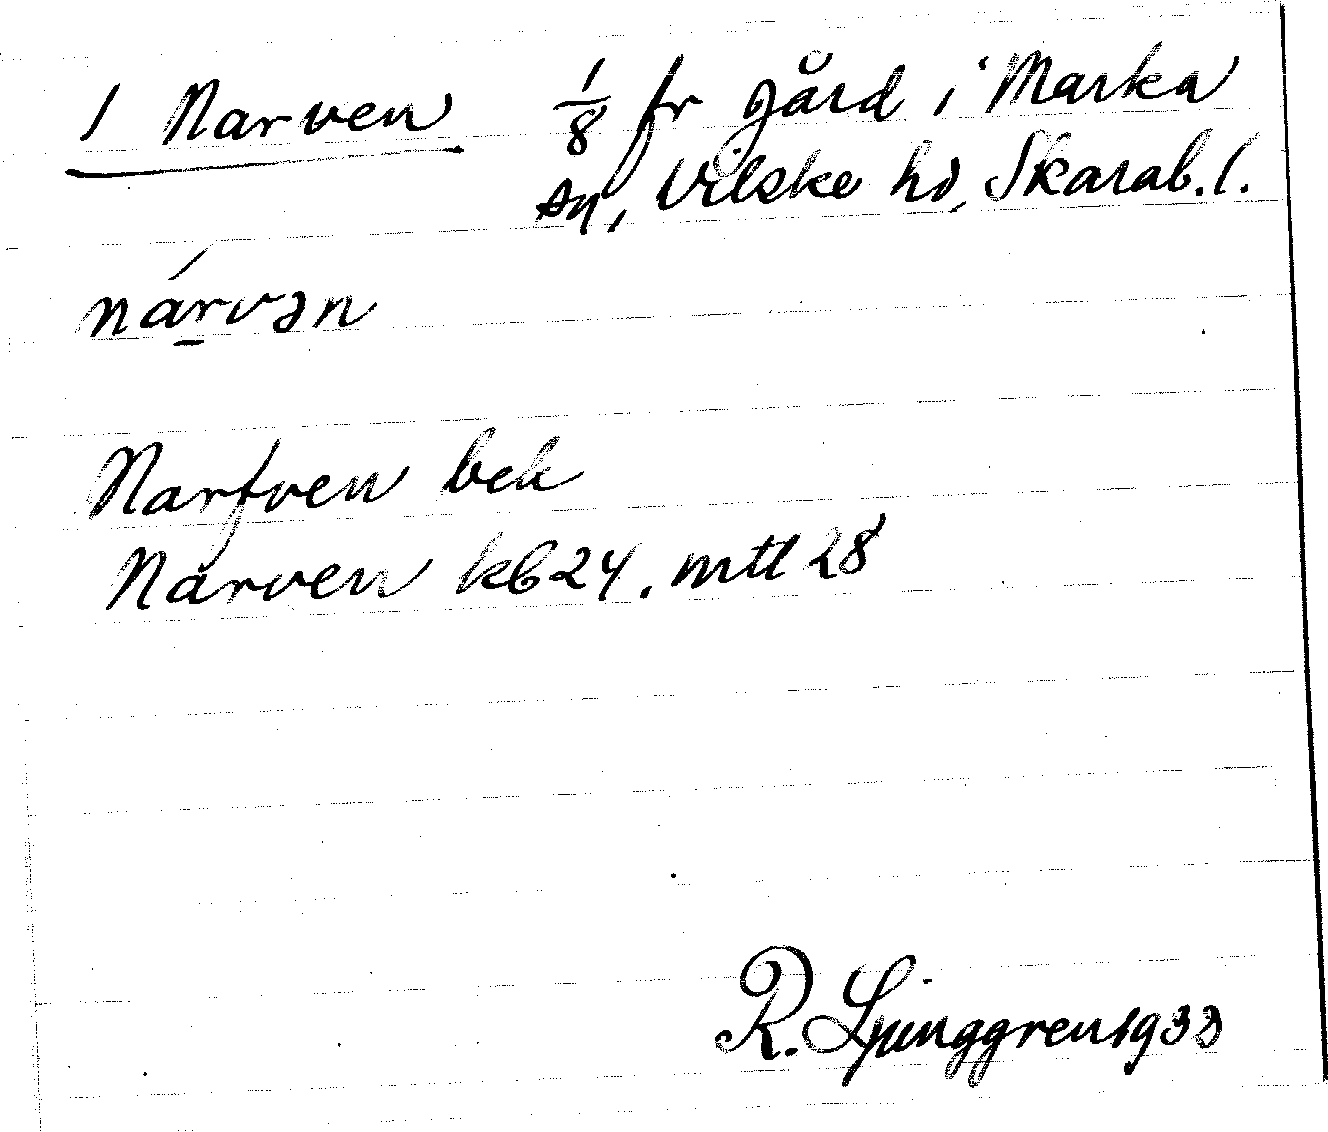 1 Narven 1/8 fr gård i Marka
sn, Vilske hd, Skarab. l.
nárvən
Narfven bek
Narven kb 24. mtl 28
R. Ljunggren 1933